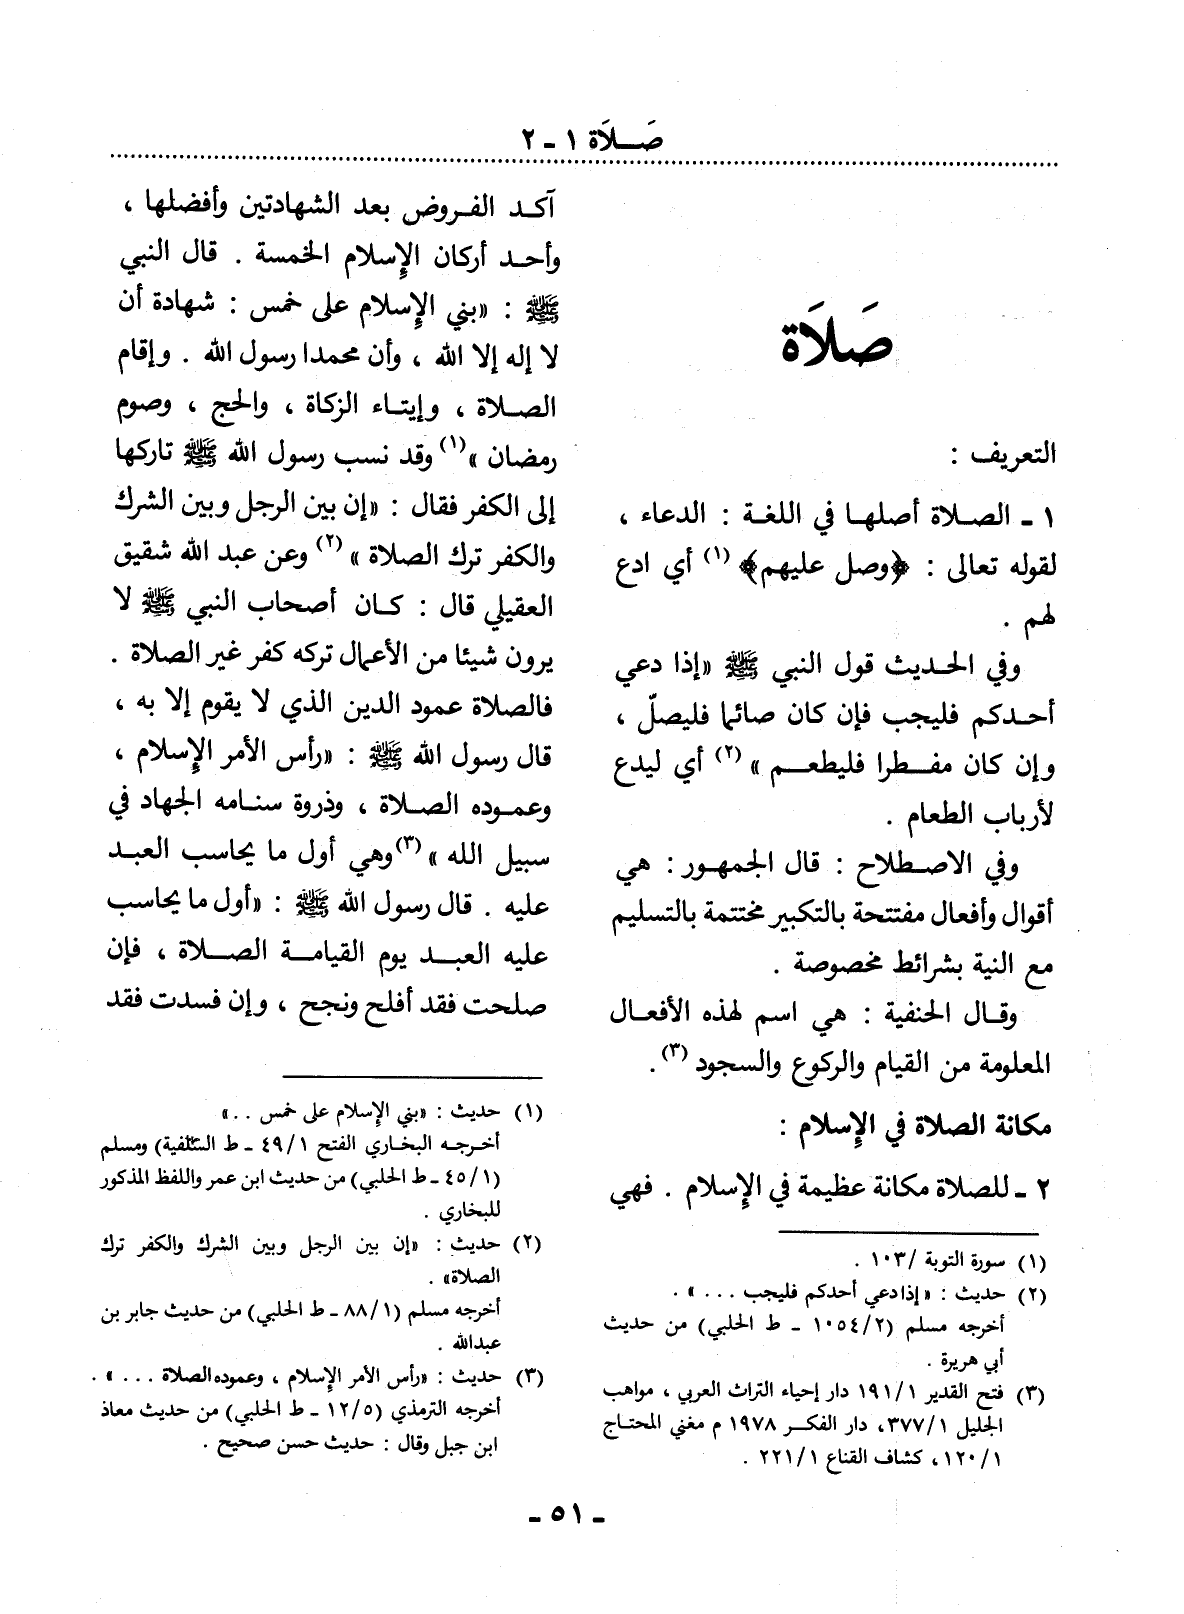 صَـلَاة ١ - ٢
صَلَاَة
التعريف :
١ - الصـلاة أصلهـا في اللغـة : الدعاء ،
لقوله تعالى : ﴿وصل عليهم﴾ (١) أي ادع
لهم .
وفي الحـديث قول النبي ﷺ «إذا دعي
أحـدكم فليجب فإن كان صائما فليصلّ ،
وإن كان مفـطرا فليطعـم » (٢) أي ليدع
لأرباب الطعام .
وفي الاصـطلاح : قال الجمهـور : هي
أقوال وأفعال مفتتحة بالتكبير مختتمة بالتسليم
مع النية بشرائط مخصوصة .
وقـال الحنفية : هي اسم لهذه الأفعـال
المعلومة من القيام والركوع والسجود (٣) .
مكانة الصلاة في الإسلام :
٢ - للصلاة مكانة عظيمة في الإسلام . فهي
(١) سورة التوبة /١٠٣ .
(٢) حديث : « إذا دعي أحدكم فليجب . . . » .
أخرجه مسلم (٢/ ١٠٥٤ - ط الحلبي) من حديث
أبي هريرة .
(٣) فتح القدير ١/ ١٩١ دار إحياء التراث العربي ، مواهب
الجليل ١/ ٣٧٧، دار الفكـر ١٩٧٨ م مغني المحتـاج
١/ ١٢٠، كشاف القناع ١/ ٢٢١ .
آكـد الفـروض بعد الشهادتين وأفضلهـا ،
وأحـد أركان الإسلام الخمسة . قال النبي
ﷺ : «بني الإسلام على خمس : شهادة أن
لا إله إلا الله ، وأن محمدا رسول الله . وإقام
الصـلاة ، وإيتـاء الزكاة ، والحج ، وصوم
رمضان » (١) وقد نسب رسول الله ﷺ تاركها
إلى الكفر فقال : «إن بين الرجل وبين الشرك
والكفر ترك الصلاة » (٢) وعن عبد الله شقيق
العقيلي قال : كـان أصحاب النبي ﷺ لا
يرون شيئا من الأعمال تركه كفر غير الصلاة .
فالصلاة عمود الدين الذي لا يقوم إلا به ،
قال رسول الله ﷺ : «رأس الأمر الإسلام ،
وعمـوده الصـلاة ، وذروة سنـامه الجهاد في
سبيل الله » (٣) وهي أول ما يحاسب العبـد
عليه . قال رسول الله ﷺ : «أول ما يحاسب
عليه العبـد يوم القيامـة الصـلاة ، فإن
صلحت فقد أفلح ونجح ، وإن فسدت فقد
(١) حديث : «بني الإسلام على خمس . .»
أخـرجـه البخـاري الفتح ١/ ٤٩ - ط السلفية) ومسلم
(١/ ٤٥ - ط الحلبي) من حديث ابن عمر واللفظ المذكور
للبخاري .
(٢) حديث : «إن بين الرجل وبين الشرك والكفر ترك
الصلاة» .
أخرجه مسلم (١/ ٨٨ - ط الحلبي) من حديث جابر بن
عبدالله .
(٣) حديث : «رأس الأمر الإسلام ، وعموده الصلاة . . . » .
أخرجه الترمذي (٥/ ١٢ - ط الحلبي) من حديث معاذ
ابن جبل وقال : حديث حسن صحيح .
- ٥١ -